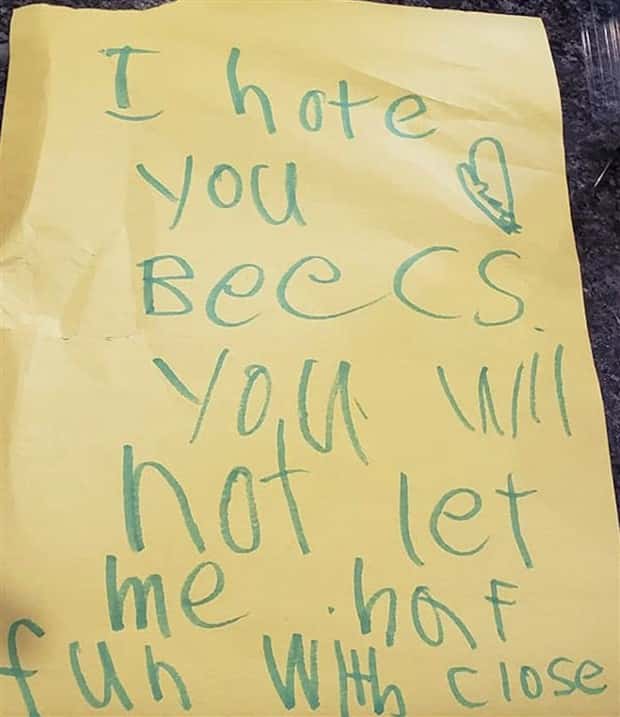 I hate
you
Bee CS.
you will
not let
me haf
fun with close